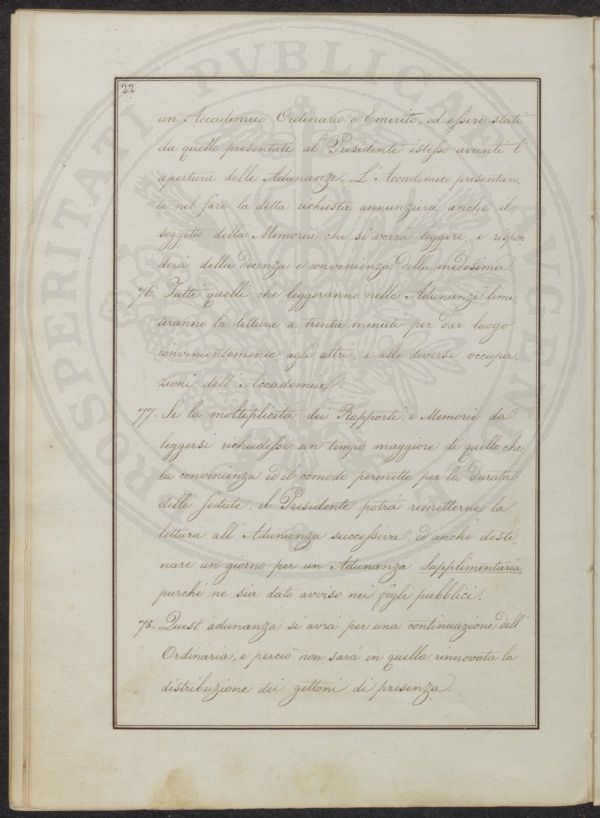 22
un Accademico Ordinario o Emerito, ed essere stati
da quello presentati al Presidente istesso avanti l'
apertura delle Adunanze. L'Accademico presentan,
te nel fare la detta richiesta annunzierà anche il
soggetto della Memoria che si vorrà leggere, e rispon
derà della decenza e convenienza della medesima.
76. Tutti quelli che leggeranno nelle Adunanze limi,
teranno la lettura a trenta minuti per dar luogo
convenientemente agli altri, e alle diverse occupa,
zioni dell'Accademia.
77. Se la moltiplicità dei Rapporti, e Memorie da
leggersi richiedesse un tempo maggiore di quello che
la convenienza ed il comodo permette per la durata
delle Sedute, il Presidente potrà rimetterne la
lettura all'Adunanza successiva, ed anche desti,
nare un giorno per un Adunanza Supplimentaria,
purché ne sia dato avviso nei fogli pubblici.
78. Quest'adunanza si avrà per una continuazione dell'
Ordinaria, e perciò non sarà in quella rinnovata la
distribuzione dei gettoni di presenza.
PROSPERITATI PUBLICAE AUGENDAE